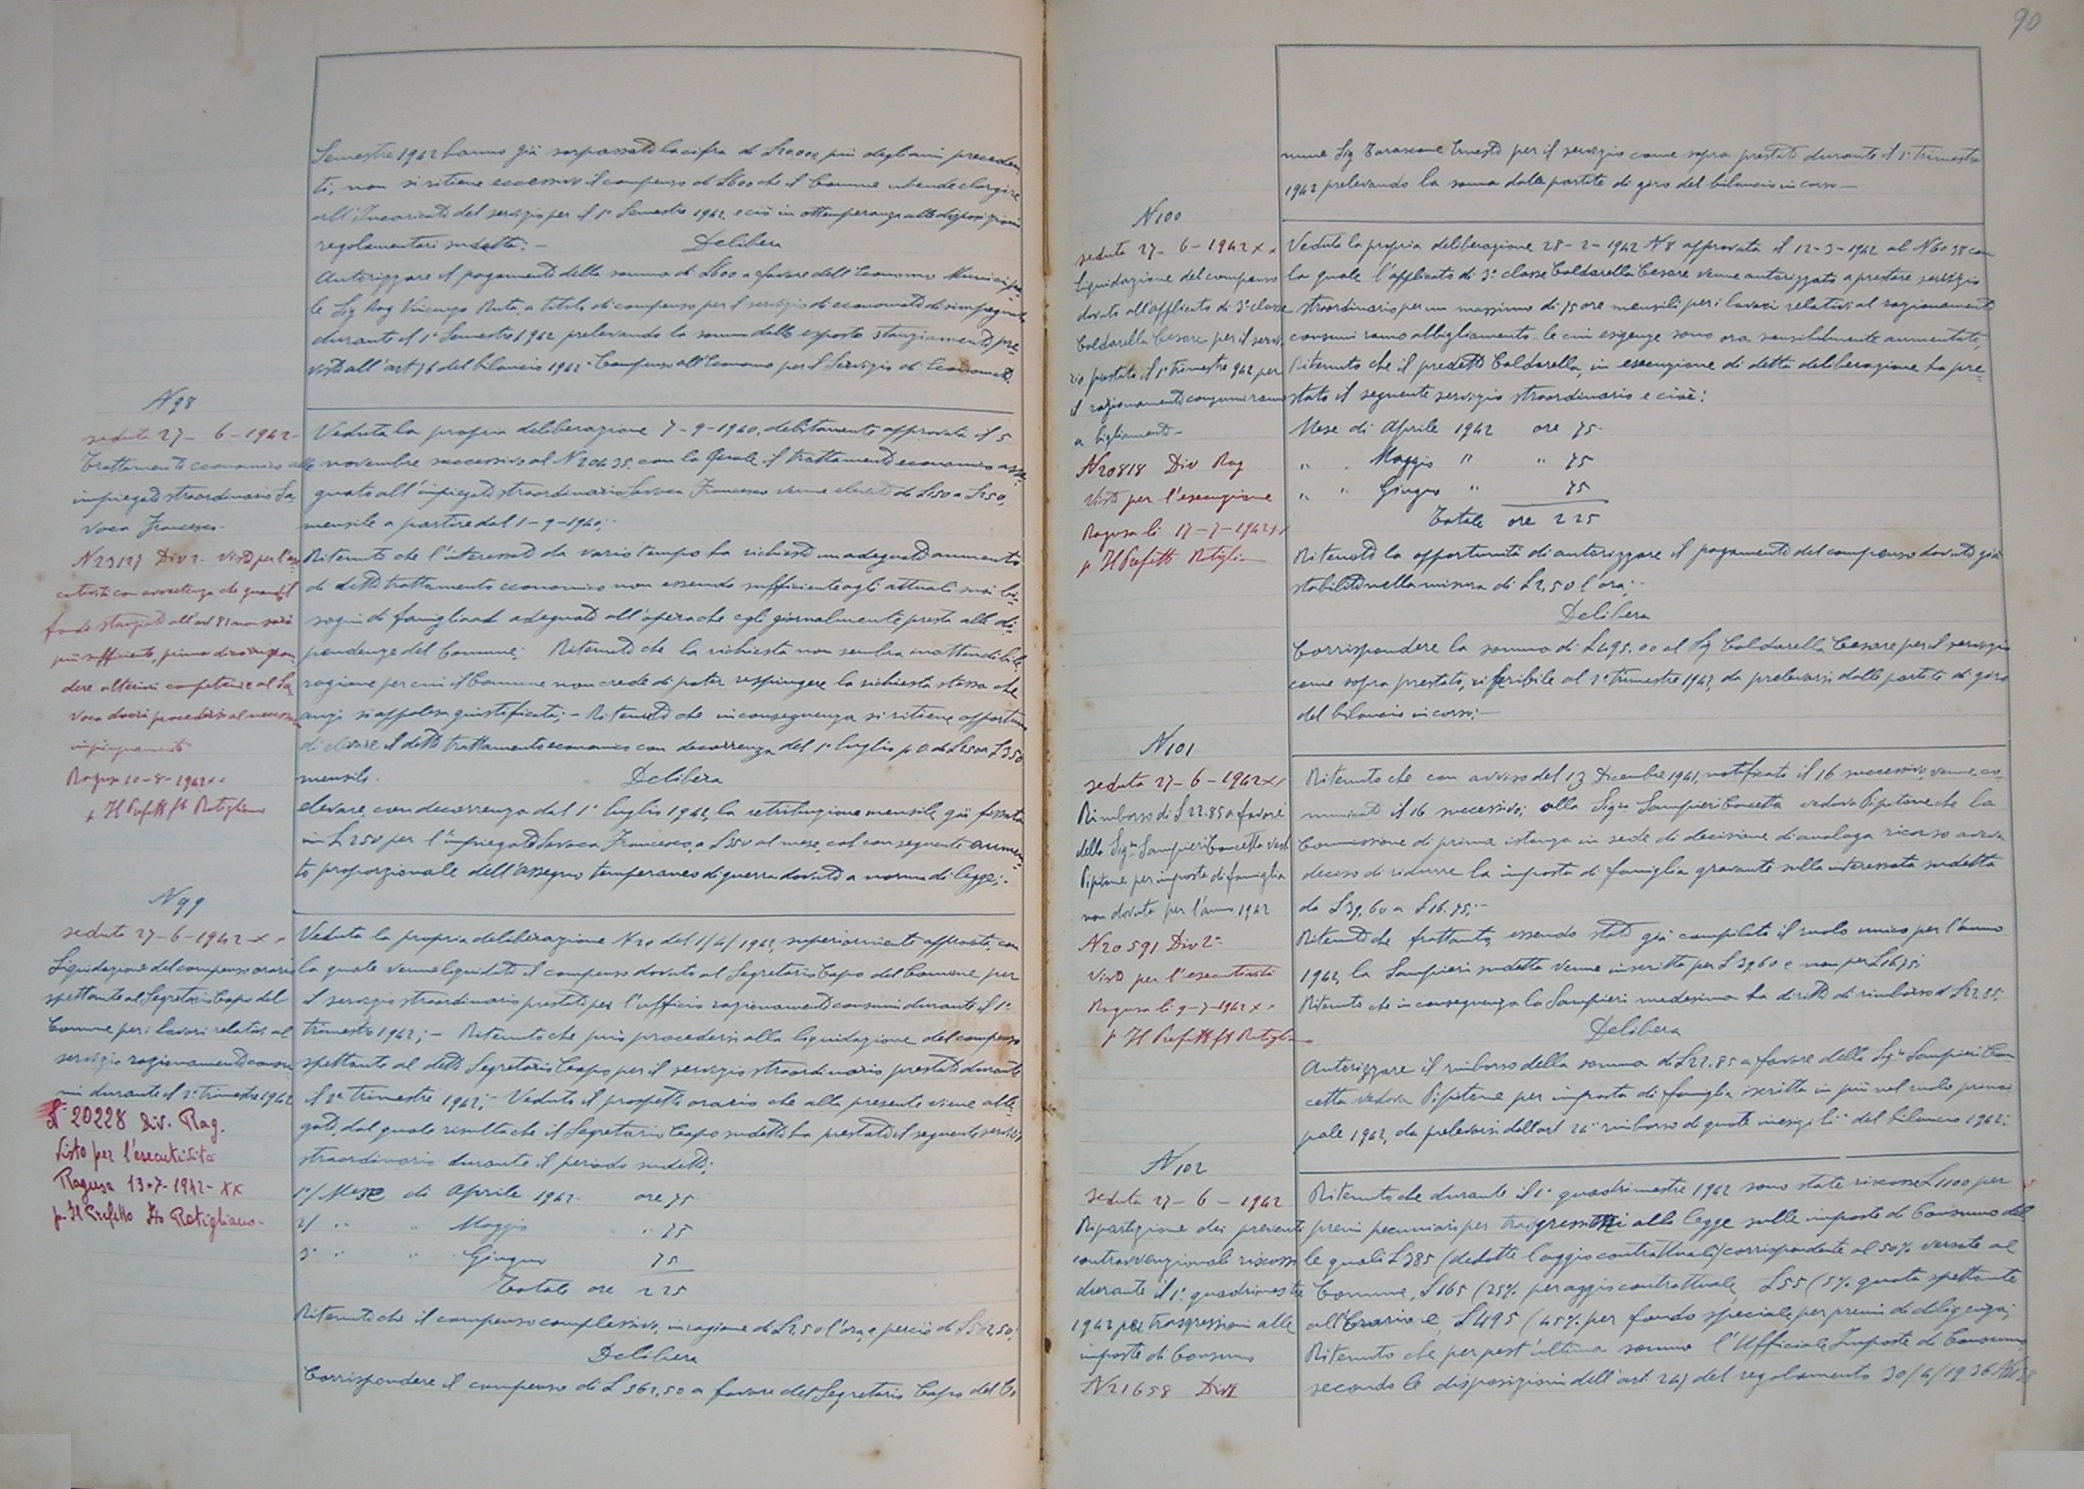 Semestre 1942 hanno già sorpassato la cifra di L 20.000 più degli anni preceden
ti, non si ritiene eccessivo il compenso di L600 che il Comune intende elargire
all'Incaricato del servizio per il 1° Semestre 1942 e ciò in ottemperanza alle disposizioni
regolamentari sudette: -
Delibera
Autorizzare il pagamento della somma di L600 a favore dell'Economo Municipa
le Sig Rag Vincenzo Ruta, a titolo di compenso per il servizio di economato disimpegnato
durante il 1° Semestre 1942 prelevando la somma dallo esposto stanziamento pre
visto all'art 76 del bilancio 1942 "Compenso all'Economo per il Servizio di Economato.
N 98
seduta 27 - 6 - 1942 -
Trattamento economico alle
impiegato straordinario Sa
voca Francesco -
N 23127 Div 2 - Visto per l'ese
cutività con avvertenza che quando il
fondo stanziato all'art 81 non sarà
più sufficiente, prima di corrispon
dere ulteriori competenze al Sa
voca dovrà procedersi al necessario
impinguamento
Ragusa 10 - 8 - 1942 xx
p Il Prefetto fto Rotigliano
Veduta la propria deliberazione 7 - 9 - 1940, debitamente approvata il 5
novembre successivo al N 20435 con la quale il trattamento economico asse
gnato all'impiegato straordinario Savoca Francesco venne elevato da L150 a L250,
mensile a partire dal 1 - 9 - 1940; -
Ritenuto che l'interessato da vario tempo ha richiesto un adeguato aumento
di detto trattamento economico non essendo sufficiente agli attuali suoi bi
sogni di famiglia ed adeguato all'opera che egli giornalmente presta alle di
pendenze del Comune; Ritenuto che la richiesta non sembra inattendibile
ragione per cui il Comune non crede di poter respingere la richiesta stessa che
anzi si appalesa giustificata; - Ritenuto che in conseguenza si ritiene opportuno
di elevare il detto trattamento economico con decorrenza del 1° luglio p.v. da L250 a L350
mensile.
Delibera
elevare, con decorrenza dal 1° luglio 1942, la retribuzione mensile già fissata
in L 250 per l'impiegato Savoca Francesco, a L350 al mese, col conseguente aumen
to proporzionale dell'assegno temporaneo di guerra dovuto a norma di legge; -
N 99
seduta 27 - 6 - 1942 - x x
Liquidazione del compenso orario
spettante al Segretario Capo del
Comune per i lavori relativi al
servizio razionamento consu
mi durante il 2° trimestre 1942
N° 20228 Div. Rag.
Visto per l'esecutività
Ragusa 13-7-1942-XX
p. Il Prefetto Fto Rotigliano -
Veduta la propria deliberazione N 20 del 1/4/1942, superiormente approvata, con
la quale venne liquidato il compenso dovuto al Segretario Capo del Comune per
il servizio straordinario prestato per l'ufficio razionamento consumi durante il 1°
trimestre 1942; - Ritenuto che può procedersi alla liquidazione del compenso
spettante al detto Segretario Capo per il servizio straordinario prestato durante
il 2° trimestre 1942; - Veduto il prospetto orario che alla presente viene alle
gato, dal quale risulta che il Segretario Capo sudetto ha prestato il seguente servizio
straordinario durante il periodo sudetto:
1°/ Mese di Aprile 1942 - ore 75
2/ " " Maggio " 75
3° " " Giugno 75
Totale ore 225
Ritenuto che il compenso complessivo, in ragione di L2.50 l'ora, e perciò di L 562.50;
Delibera
Corrispondere il compenso di L 562,50 a favore del Segretario Capo del Co
90
mune Sig Tarascone Ernesto per il servizio come sopra prestato durante il 2° trimestre
1942 prelevando la somma dalle partite di giro del bilancio in corso -
N 100
seduta 27 - 6 - 1942 x x
Liquidazione del compenso
dovuto all'applicato di 3° classe
Caldarella Cesare per il servi
zio prestato il 2° trimestre 942 per
il razionamento consumi ramo
abbigliamento -
N 20818 Div Rag
Visto per l'esecuzione
Ragusa li 17 - 7 - 1942 xx
p Il Prefetto Rotigliano
Veduta la propria deliberazione 28 - 2 - 1942 N 8 approvata il 12 - 3 - 1942 al N 6038 con
la quale l'applicato di 3° classe Caldarella Cesare venne autorizzato a prestare servizio
straordinario per un massimo di 75 ore mensili per i lavori relativi al razionamento
consumi ramo abbigliamento le cui esigenze sono ora sensibilmente aumentate;
Ritenuto che il predetto Caldarella, in esecuzione di detta deliberazione ha pre
stato il seguente servizio straordinario e cioè:
Mese di Aprile 1942 ore 75 -
" " Maggio " " 75
" " Giugno " 75
Totale ore 225
Ritenuto la opportunità di autorizzare il pagamento del compenso dovuto già
stabilito nella misura di L 2,50 l'ora; -
Delibera
Corrispondere la somma di L 495.00 al Sig Caldarella Cesare per il servizio
come sopra prestato, riferibile al 2° trimestre 1942, da prelevarsi dalle partite di giro
del bilancio in corso; -
N 101
seduta 27 - 6 - 1942 xx
Rimborso di L 22.85 a favore
della Sigra Sampieri Concetta ved
Pipitone per imposta di famiglia
non dovuta per l'anno 1942
N 20591 Div 2a
Visto per l'esecutività
Ragusa li 9 - 7 - 1942 x x
p Il Prefetto fto Rotigliano
Ritenuto che con avviso del 13 Dicembre 1941, notificato il 16 successivo, venne co
municato il 16 successivo; alla Sigra Sampieri Concetta vedova Pipitone che la
Commissione di prima istanza in sede di decisione di analogo ricorso aveva
deciso di ridurre la imposta di famiglia gravante sulla interessata sudetta
da L39,60 a L16.75; -
Ritenuto che frattanto, essendo stato già compilato il ruolo unico per l'anno
1942, la Sampieri sudetta venne inscritta per L 39,60 e non per L16,75;
Ritenuto che in conseguenza la Sampieri medesima ha diritto di rimborso di L22.85;
Delibera
Autorizzare il rimborso della somma di L22.85 a favore della Sigra Sampieri Con
cetta vedova Pipitone per imposta di famiglia iscritta in più nel ruolo princi
pale 1942, da prelevarsi dall'art 26 "rimborso di quote inesigibili" del bilancio 1942;
N 102
seduta 27 - 6 - 1942
Ripartizione dei proventi
contravvenzionali riscossi
durante il 1° quadrimestre
1942 per trasgressioni alle
imposte di Consumo
N 21658 Div 2
Ritenuto che durante il 1° quadrimestre 1942 sono state riscosse L1100 per
premi pecuniari per trasgressioni alla legge sulle imposte di Consumo del
le quali L 385 (dedotte l'aggio contrattuale) corrispondente al 50% versate al
Comune, L165 (25% per aggio contrattuale, L55 (5% quota spettante
all'Erario e L495 (45% per fondo speciale per premi di diligenza;
Ritenuto che per quest'ultima somma l'Ufficiale Imposte di Consumo
secondo le disposizioni dell'art. 247 del regolamento 30/4/1936 N